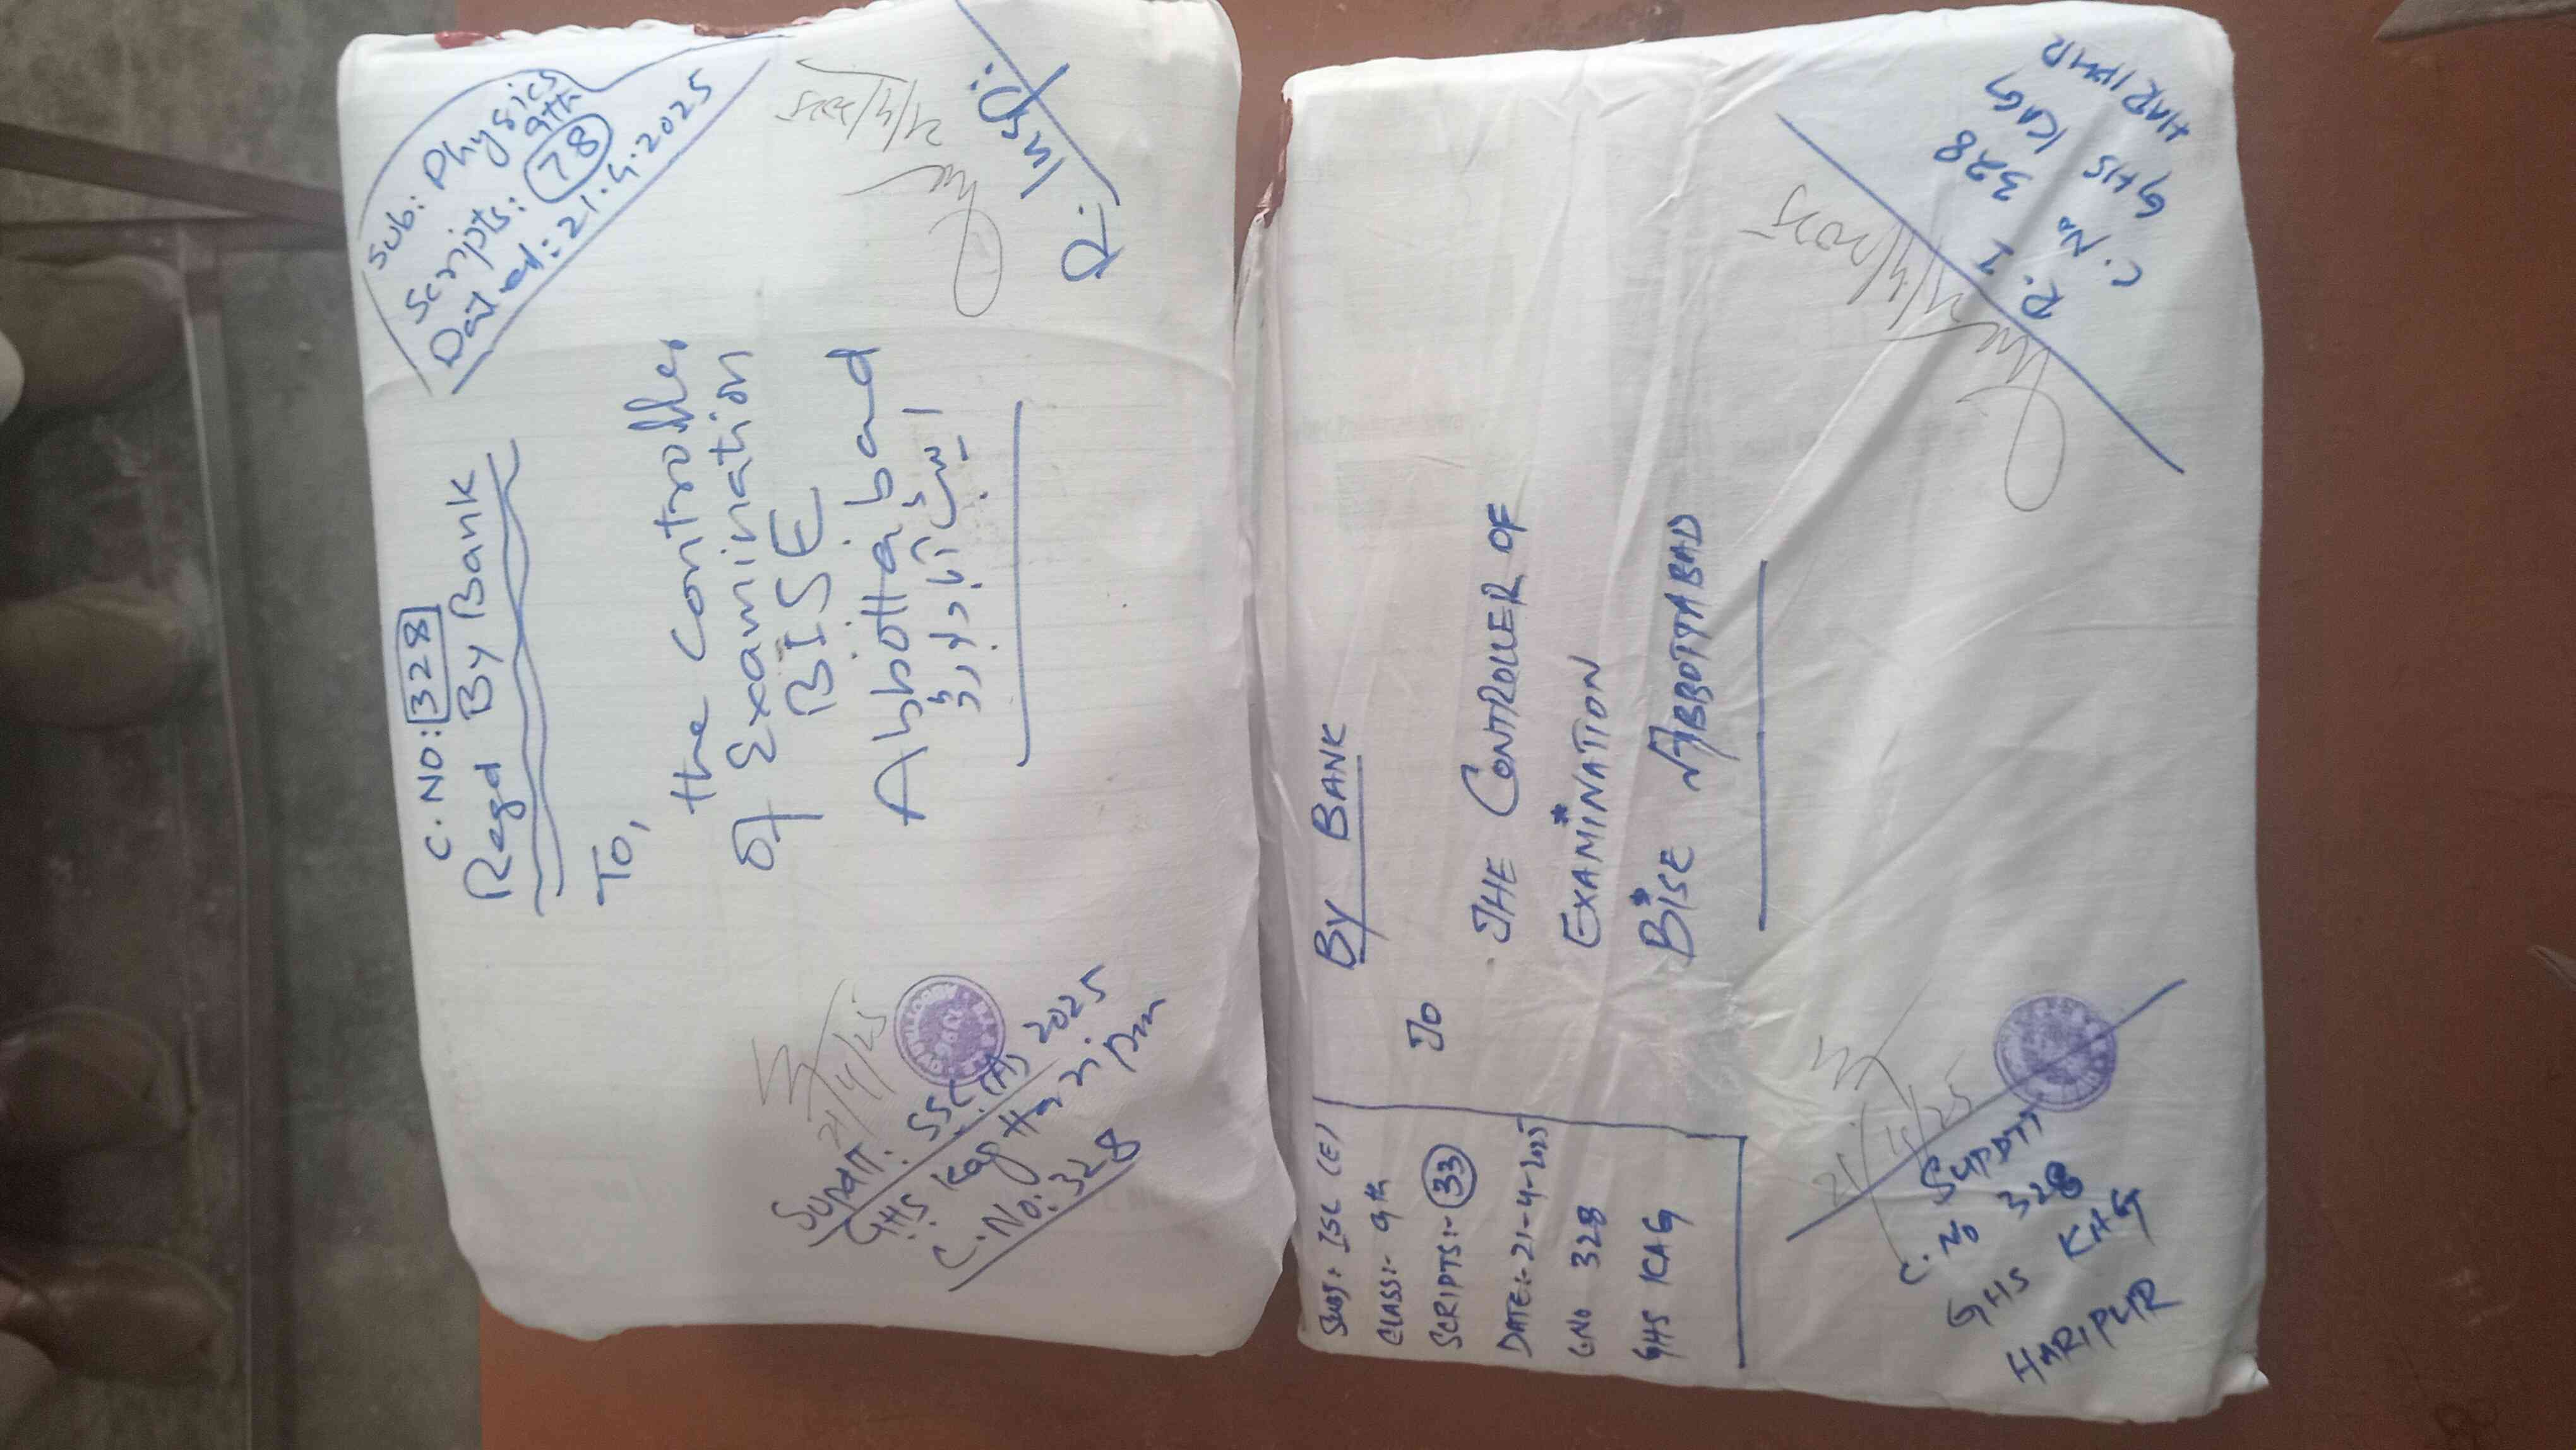 C. NO: 328
Regd By Bank
Sub: Physics
9th
Scripts: 78
Dated: 21.4.2025
To,
the Controller
of Examination
BISE
Abbottabad
ایبٹ آباد بورڈ
21/4/25
Supdtt: SSC (A) 2025
GHS Kag Haripur
C. No: 328
21/4/2025
R. Insp:
SUBJ:- ISL (E)
CLASS:- 9th
SCRIPTS:- 33
DATE:- 21-4-2025
C No 328
GHS KAG
By BANK
To
THE CONTROLLER OF
EXAMINATION
BISE ABBOTTABAD
21/4/25
SUPDTT
C. No 328
GHS KAG
HARIPUR
21/4/2025
R. I
C. No 328
GHS KAG
HARIPUR